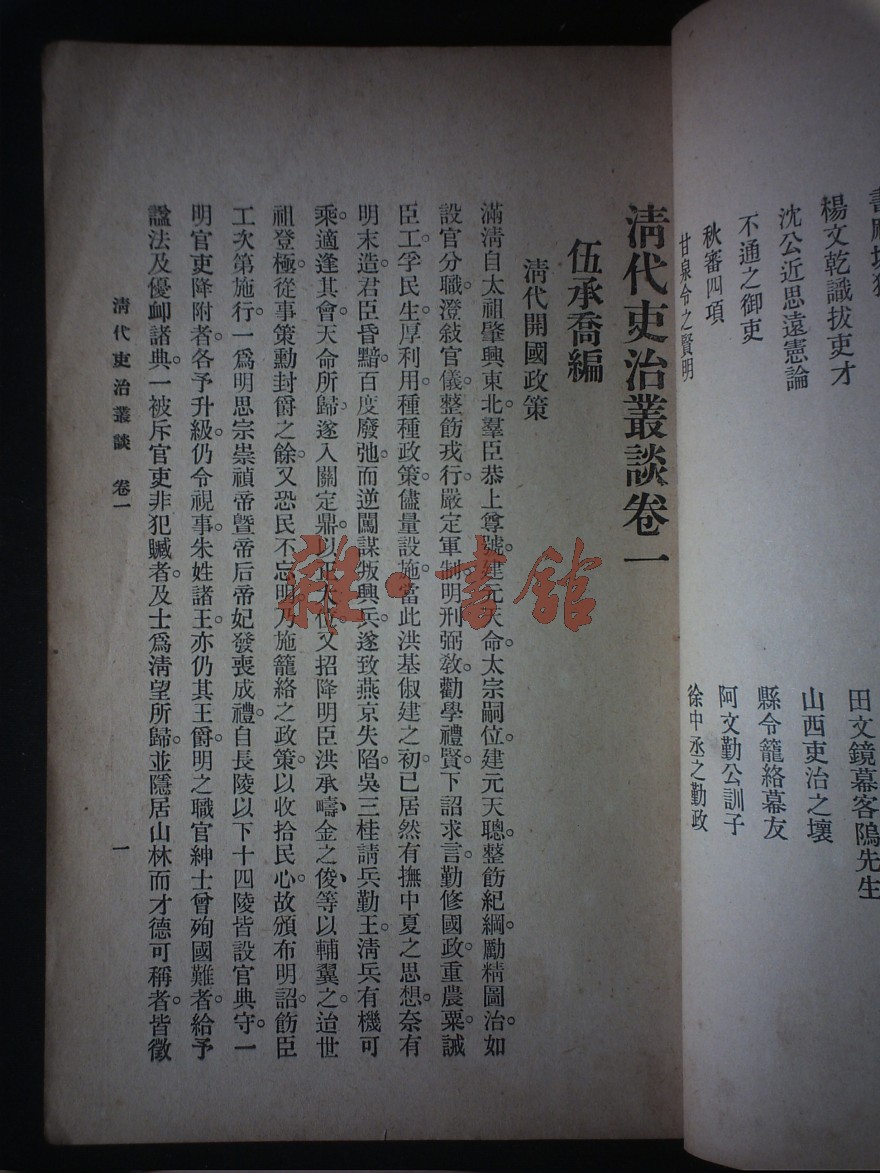 楊文乾識拔吏才
沈公近思遠憲論
不通之御吏
秋審四項
甘泉令之賢明
田文鏡幕客鄔先生
山西吏治之壞
縣令籠絡幕友
阿文勤公訓子
徐中丞之勤政
淸代吏治叢談卷一
伍承喬編
淸代開國政策
滿淸自太祖肇興東北。羣臣恭上尊號。建元天命。太宗嗣位。建元天聰。整飭紀綱。勵精圖治。如
設官分職。澄敍官儀。整飭戎行。嚴定軍制。明刑弼敎。勸學禮賢。下詔求言。勤修國政。重農粟。誡
臣工。孚民生。厚利用。種種政策。儘量設施。當此洪基俶建之初。已居然有撫中夏之思想。奈有
明末造。君臣昏黯。百度廢弛。而逆闖謀叛興兵。遂致燕京失陷。吳三桂請兵勤王。淸兵有機可
乘。適逢其會。天命所歸。遂入關定鼎。以正大位。又招降明臣洪承疇、金之俊、等以輔翼之。迨世
祖登極。從事策勳封爵之餘。又恐民不忘明。乃施籠絡之政策。以收拾民心。故頒布明詔。飭臣
工次第施行。一爲明思宗崇禎帝曁帝后帝妃發喪成禮。自長陵以下十四陵皆設官典守。一
明官吏降附者。各予升級。仍令視事。朱姓諸王。亦仍其王爵。明之職官紳士曾殉國難者。給予
諡法及優卹諸典。一被斥官吏非犯贓者。及士爲淸望所歸。並隱居山林而才德可稱者。皆徵
淸代吏治叢談 卷一 一